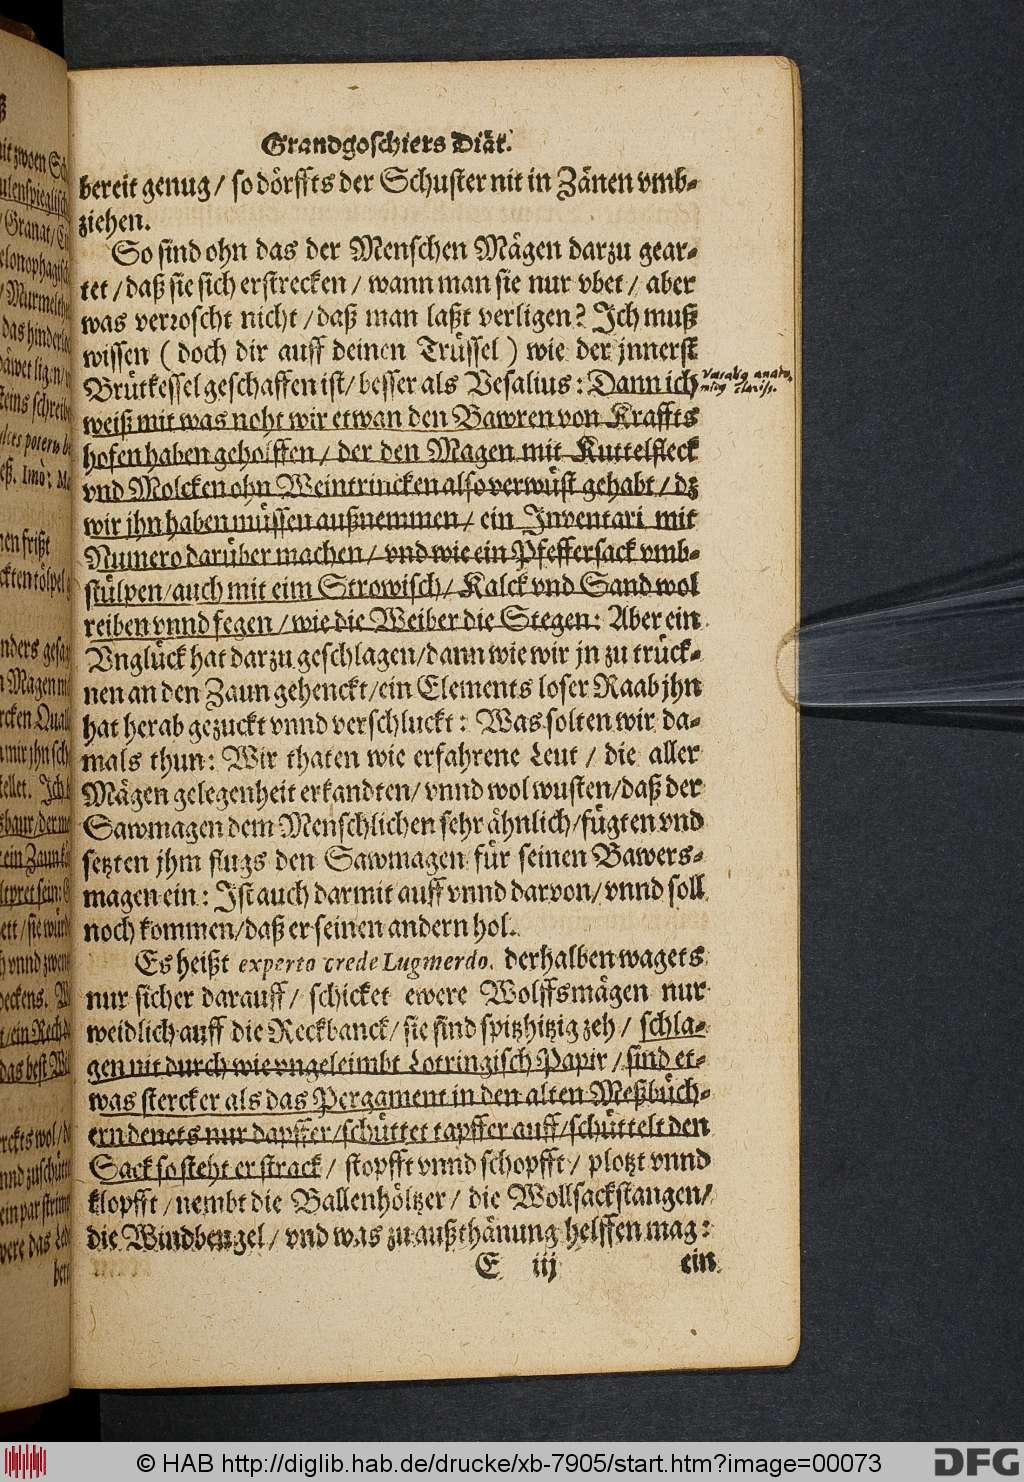 Grandgoschiers Diät.
bereit genug / so dörffts der Schuster nit in Zänen vmb-
ziehen.
So sind ohn das der Menschen Mägen darzu gear-
tet / daß sie sich erstrecken / wann man sie nur vbet / aber
was verroscht nicht / daß man laßt verligen? Ich muß
wissen ( doch dir auff deinen Trüssel ) wie der jnnerst
Brütkessel geschaffen ist / besser als Vesalius : Dann ich
weiß mit was noht wir etwan den Bawren von Kraffts
hofen haben geholffen / der den Magen mit Kuttelfleck
vnd Molcken ohn Weintrincken also verwüst gehabt / dz
wir jhn haben müssen außnemmen / ein Inventari mit
Numero darüber machen / vnd wie ein Pfeffersack vmb-
stülpen / auch mit eim Strowisch / Kalck vnd Sand wol
reiben vnnd fegen / wie die Weiber die Stegen : Aber ein
Vnglück hat darzu geschlagen / dann wie wir jn zu trück-
nen an den Zaun gehenckt / ein Elements loser Raab jhn
hat herab gezuckt vnnd verschluckt : Was solten wir da-
mals thun : Wir thaten wie erfahrene Leut / die aller
Mägen gelegenheit erkandten / vnnd wol wusten / daß der
Sawmagen dem Menschlichen sehr ähnlich / fügten vnd
setzten jhm flugs den Sawmagen für seinen Bawers-
magen ein : Ist auch darmit auff vnnd darvon / vnnd soll
noch kommen / daß er seinen andern hol.
Es heißt experto crede Lugmerdo. derhalben wagets
nur sicher darauff / schicket ewere Wolffsmägen nur
weidlich auff die Reckbanck / sie sind spitzhitzig zeh / schla-
gen nit durch wie vngeleimbt Lotringisch Papir / sind et-
was stercker als das Pergament in den alten Meßbüch-
ern denets nur dapffer / schüttet tapffer auff / schüttelt den
Sack so steht er strack / stopfft vnnd schopfft / plotzt vnnd
klopfft / nembt die Ballenhöltzer / die Wollsackstangen /
die Windbengel / vnd was zu außthänung helffen mag :
E iij ein
© HAB http://diglib.hab.de/drucke/xb-7905/start.htm?image=00073
DFG